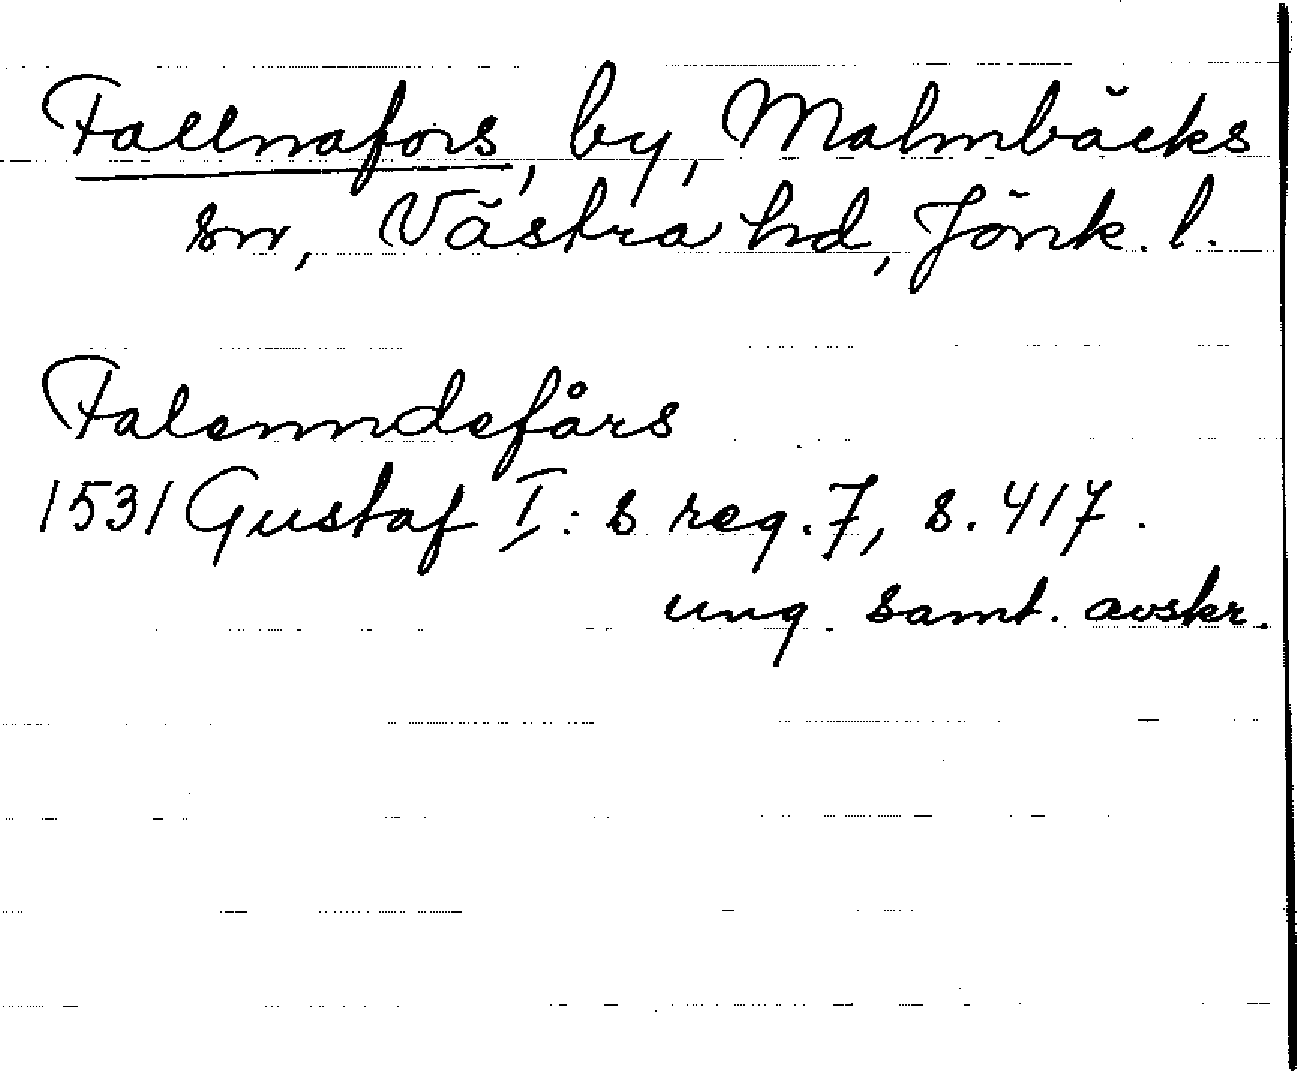 Fallnafors, by, Malmbäcks
sn, Västra hd, Jönk. l.
Falenndefårs
1531 Gustaf I:s reg. 7, s. 417.
ung. samt. avskr.